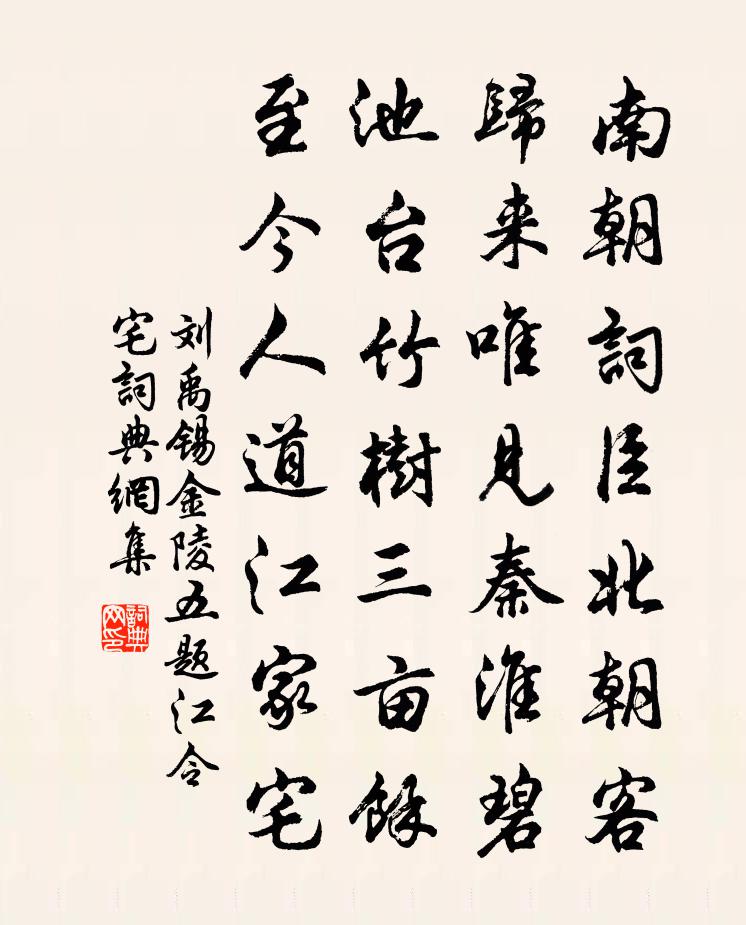 南朝詞臣北朝客
歸来唯見秦淮碧
池台竹樹三亩餘
至今人道江家宅
刘禹锡金陵五题江令
宅詞典網集
詞典
网印